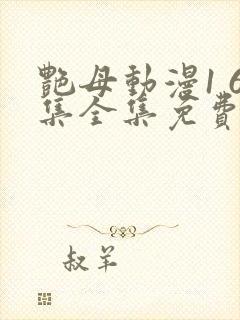 艷母動漫1 6
集全集免費
叔羊